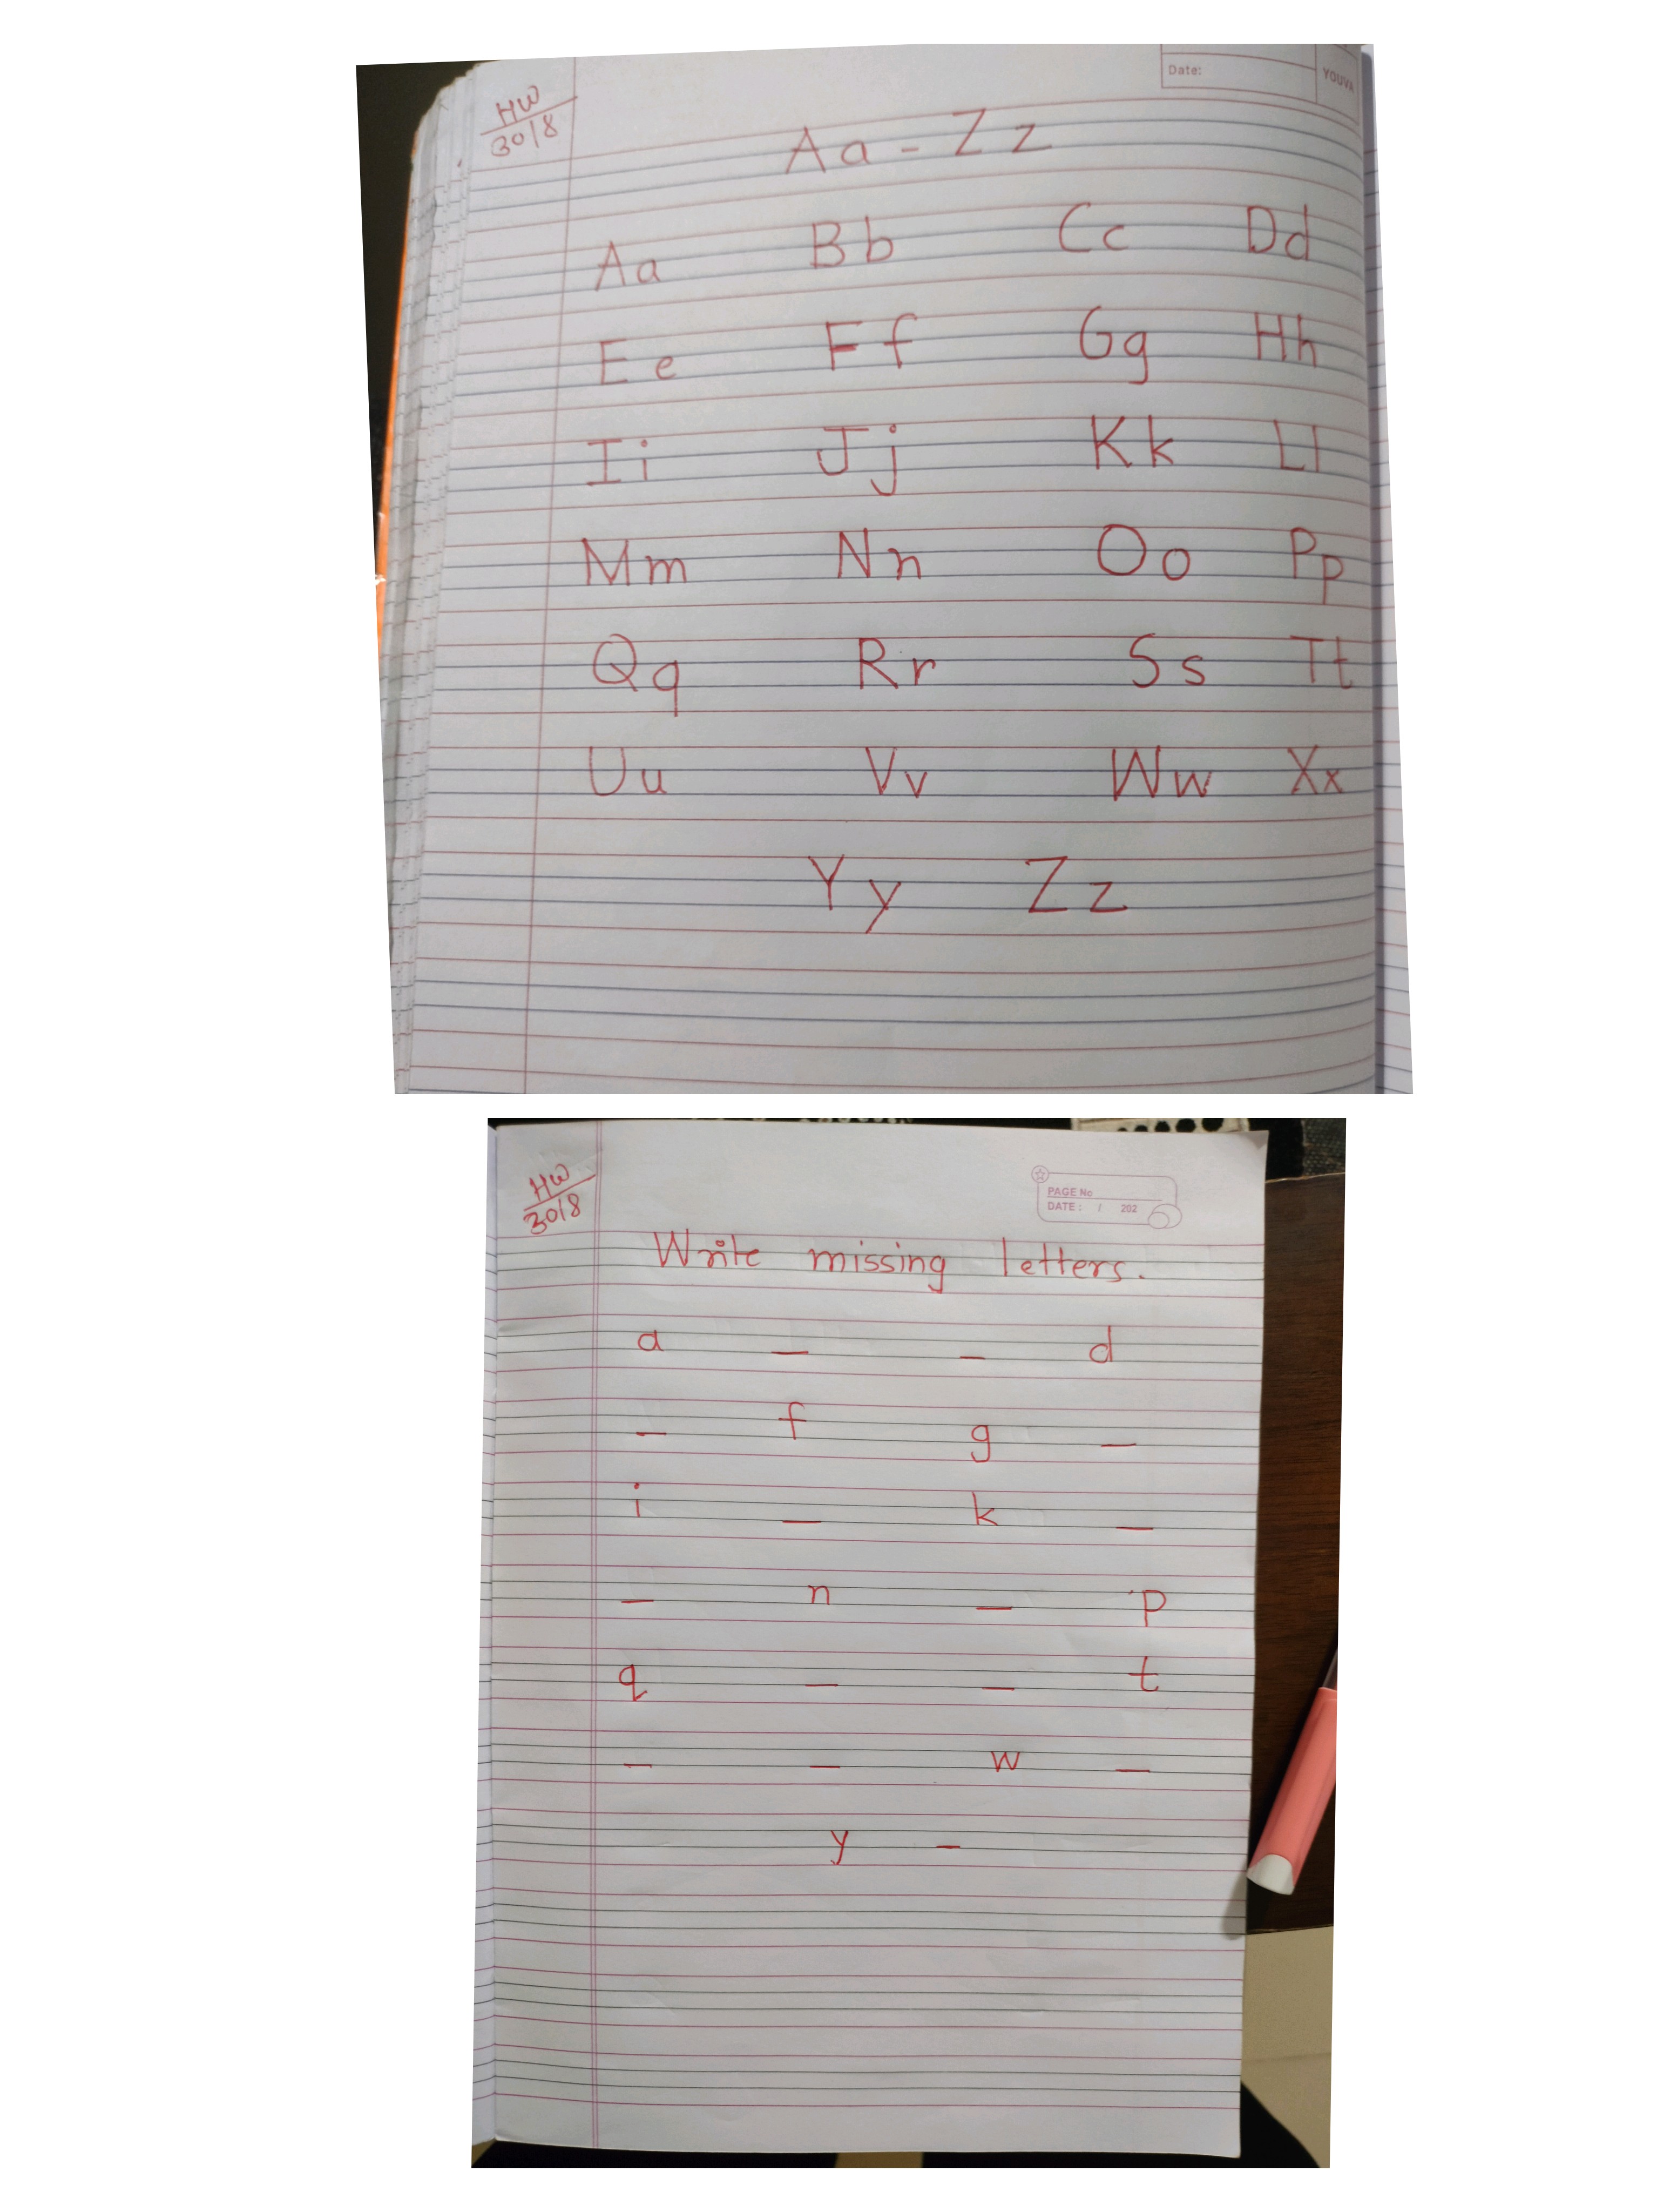 Date:
YOUVA
HW
30/8
Aa - Zz
Aa Bb Cc Dd
Ee Ff Gg Hh
Ii Jj Kk Ll
Mm Nn Oo Pp
Qq Rr Ss Tt
Uu Vv Ww Xx
Yy Zz
HW
30/8
PAGE No
DATE : / 202
Write missing letters.
a _ _ d
_ f g _
i _ k _
_ n _ p
q _ _ t
_ _ w _
y _